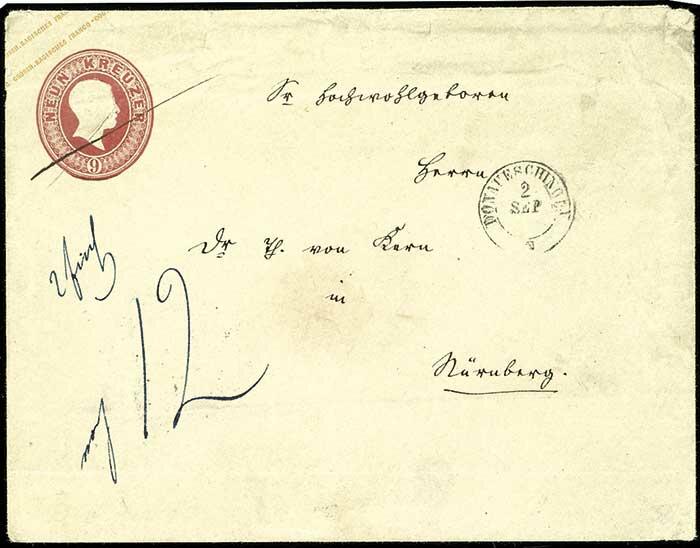 GROSH. BADISCHES FRANCO-COU
NEUN KREUZER
9
Sr Hochwohlgeboren
Herrn
DONAUESCHINGEN
2
SEP
Dr Th. von Kern
in
12
Nürnberg.